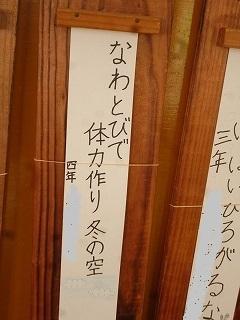 なわとびで
体力作り 冬の空
四年
いっぱいひろがるな
三年